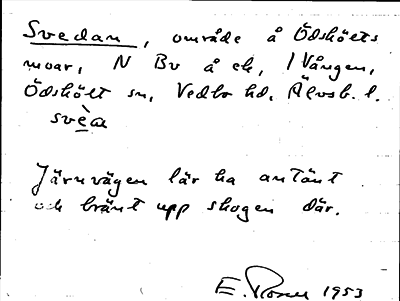 Svedan, område å Ödshölts
moar, N Bv å ek, /Vången,
Ödshölt sn, Vedbo hd, Älvsb. l.
svèa
Järnvägen lär ha antänt
och bränt upp skogen där.
E. Rosén 1953